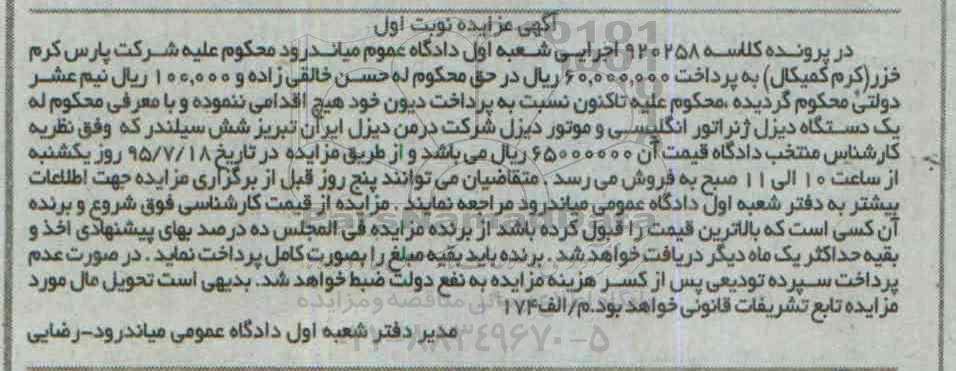 آگهی مزایده نوبت اول
در پرونده کلاسه ۹۲۰۲۵۸ اجرایی شعبه اول دادگاه عموم میاندرود محکوم علیه شرکت پارس کرم
خزر(کرم کمیکال) به پرداخت ۶۰,۰۰۰,۰۰۰ ریال در حق محکوم له حسن خالقی زاده و ۱۰۰,۰۰۰ ریال نیم عشر
دولتی محکوم گردیده ،محکوم علیه تاکنون نسبت به پرداخت دیون خود هیچ اقدامی ننموده و با معرفی محکوم له
یک دستگاه دیزل ژنراتور انگلیسی و موتور دیزل شرکت درمن دیزل ایران تبریز شش سیلندر که وفق نظریه
کارشناس منتخب دادگاه قیمت آن ۶۵۰۰۰۰۰۰ ریال می باشد و از طریق مزایده در تاریخ ۹۵/۷/۱۸ روز یکشنبه
از ساعت ۱۰ الی ۱۱ صبح به فروش می رسد . متقاضیان می توانند پنج روز قبل از برگزاری مزایده جهت اطلاعات
بیشتر به دفتر شعبه اول دادگاه عمومی میاندرود مراجعه نمایند . مزایده از قیمت کارشناسی فوق شروع و برنده
آن کسی است که بالاترین قیمت را قبول کرده باشد از برنده مزایده فی المجلس ده درصد بهای پیشنهادی اخذ و
بقیه حداکثر یک ماه دیگر دریافت خواهد شد . برنده باید بقیه مبلغ را بصورت کامل پرداخت نماید . در صورت عدم
پرداخت سپرده تودیعی پس از کسر هزینه مزایده به نفع دولت ضبط خواهد شد. بدیهی است تحویل مال مورد
مزایده تابع تشریفات قانونی خواهد بود.م/الف۱۷۴
مدیر دفتر شعبه اول دادگاه عمومی میاندرود-رضایی
ParsNamadData
۰۲۱-۸۸۳۴۹۶۷۰-۵